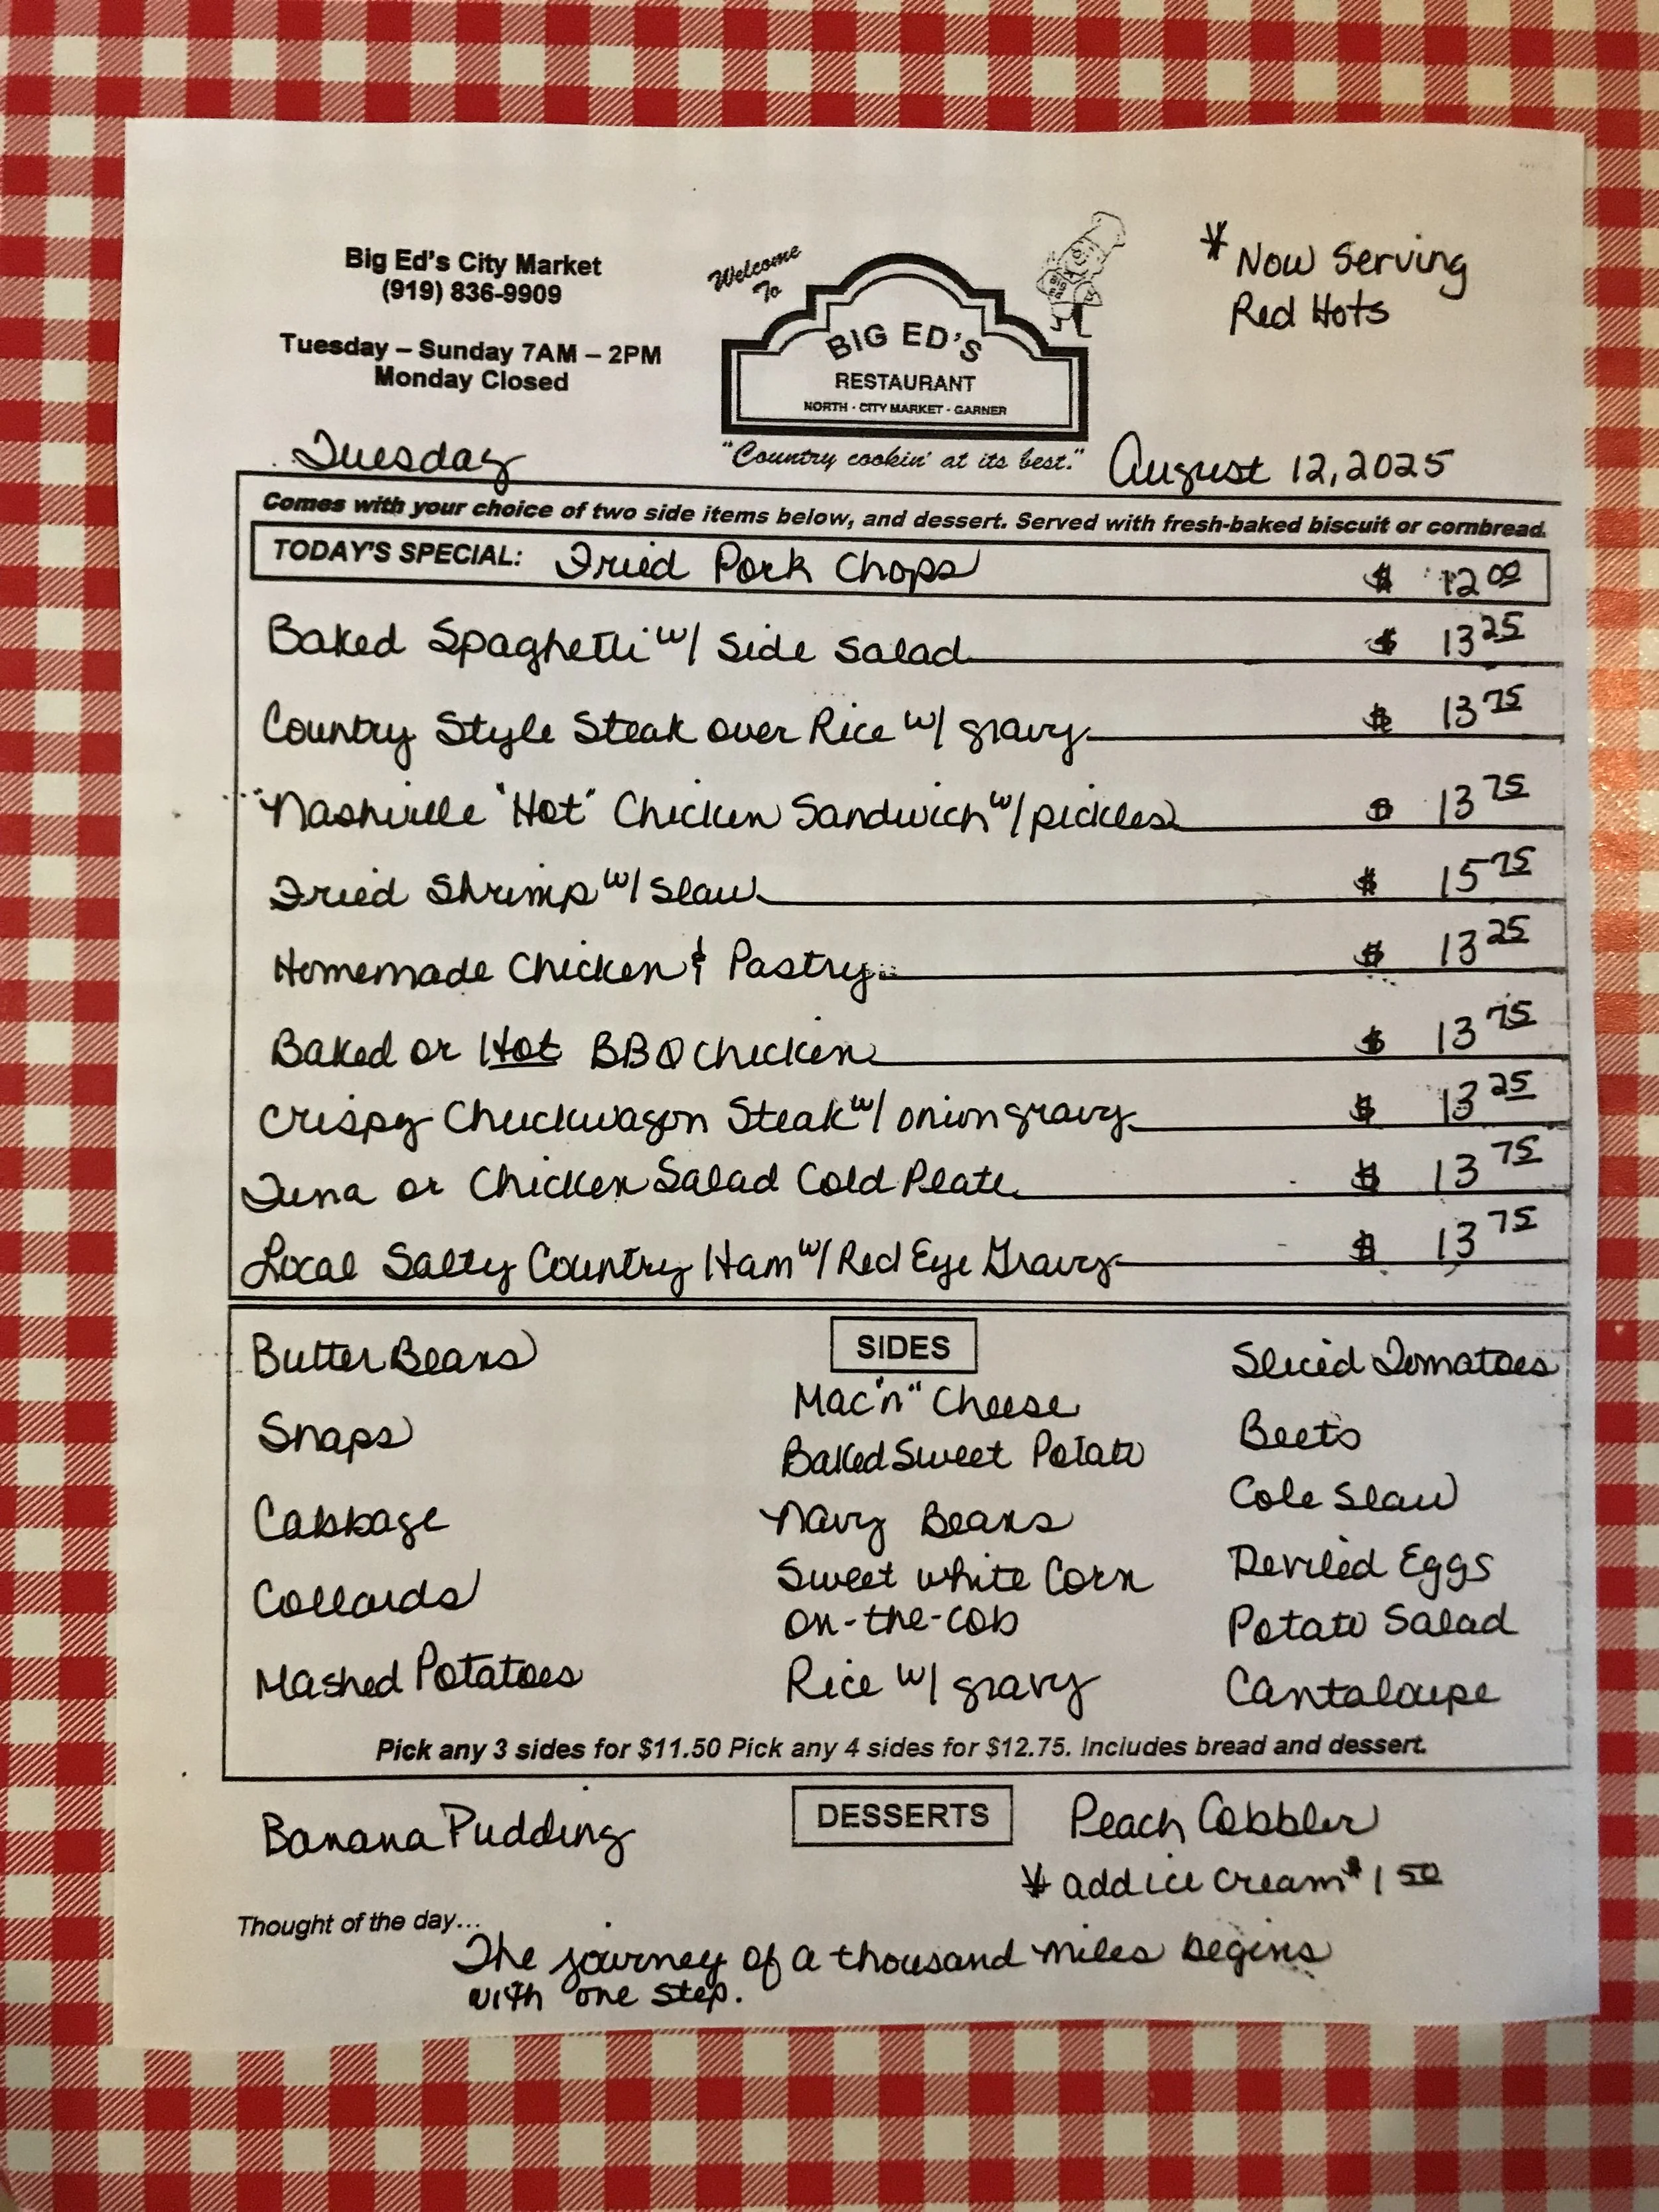 Big Ed's City Market
(919) 836-9909
Tuesday – Sunday 7AM – 2PM
Monday Closed
Welcome
To
BIG ED'S
RESTAURANT
NORTH · CITY MARKET · GARNER
"Country cookin' at its best."
* Now Serving
Red Hots
Tuesday
August 12, 2025
Comes with your choice of two side items below, and dessert. Served with fresh-baked biscuit or cornbread.
TODAY'S SPECIAL: Fried Pork Chops $ 12 00
Baked Spaghetti w/ Side Salad $ 13 25
Country Style Steak over Rice w/ gravy $ 13 75
Nashville "Hot" Chicken Sandwich w/ pickles $ 13 75
Fried Shrimp w/ Slaw $ 15 75
Homemade Chicken & Pastry $ 13 25
Baked or Hot BBQ Chicken $ 13 75
Crispy Chuckwagon Steak w/ onion gravy $ 13 25
Tuna or Chicken Salad Cold Plate $ 13 75
Local Salty Country Ham w/ Red Eye Gravy $ 13 75
SIDES
Butter Beans
Snaps
Cabbage
Collards
Mashed Potatoes
Mac "n" Cheese
Baked Sweet Potato
Navy Beans
Sweet white Corn
on-the-cob
Rice w/ gravy
Sliced Tomatoes
Beets
Cole Slaw
Deviled Eggs
Potato Salad
Cantaloupe
Pick any 3 sides for $11.50 Pick any 4 sides for $12.75. Includes bread and dessert.
DESSERTS
Banana Pudding
Peach Cobbler
* add ice cream $1 50
Thought of the day...
The journey of a thousand miles begins
with one step.